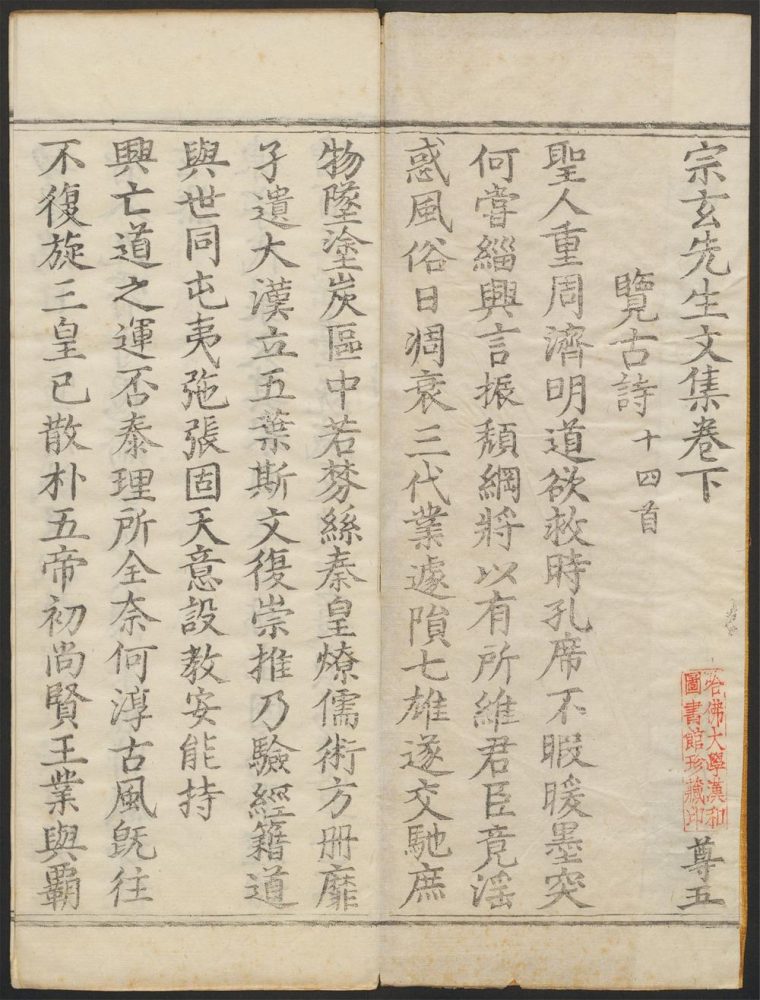 宗玄先生文集卷下
尊五
覽古詩 十四首
聖人重周濟明道欲救時孔席不暇暖墨突
何嘗緇興言振頽綱將以有所維君臣竟淫
惑風俗日凋衰三代業遽隕七雄遂交馳庶
物墜塗炭區中若棼絲秦皇燎儒術方册靡
孑遺大漢立五葉斯文復崇推乃驗經籍道
與世同屯夷弛張固天意設教安能持
興亡道之運否泰理所全奈何淳古風旣往
不復旋三皇已散朴五帝初尚賢王業與霸
哈佛大學漢和
圖書館珍藏印